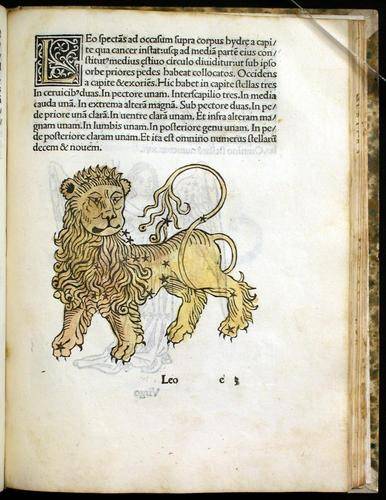 LEo spectãs ad occasum supra corpus hydrę a capi/
te qua cancer instat: usq; ad mediã partẽ eius con/
stitutꝰ medius ęstiuo circulo diuiditur: ut sub ipso
orbe priores pedes habeat collocatos. Occidens
a capite & exoriẽs. Hic habet in capite stellas tres
In ceruicibꝰ duas. In pectore unam. Interscapilio tres. In media
cauda unã. In extrema alterã magnã. Sub pectore duas. In pe/
de priore unã clarã. In uentre clarã unam. Et infra alteram ma/
gnam unam. In lumbis unam. In posteriore genu unam. In pe/
de posteriore claram unam. Et ita est omnino numerus stellarũ
decem & nouem.
Leo c 3
Virgo